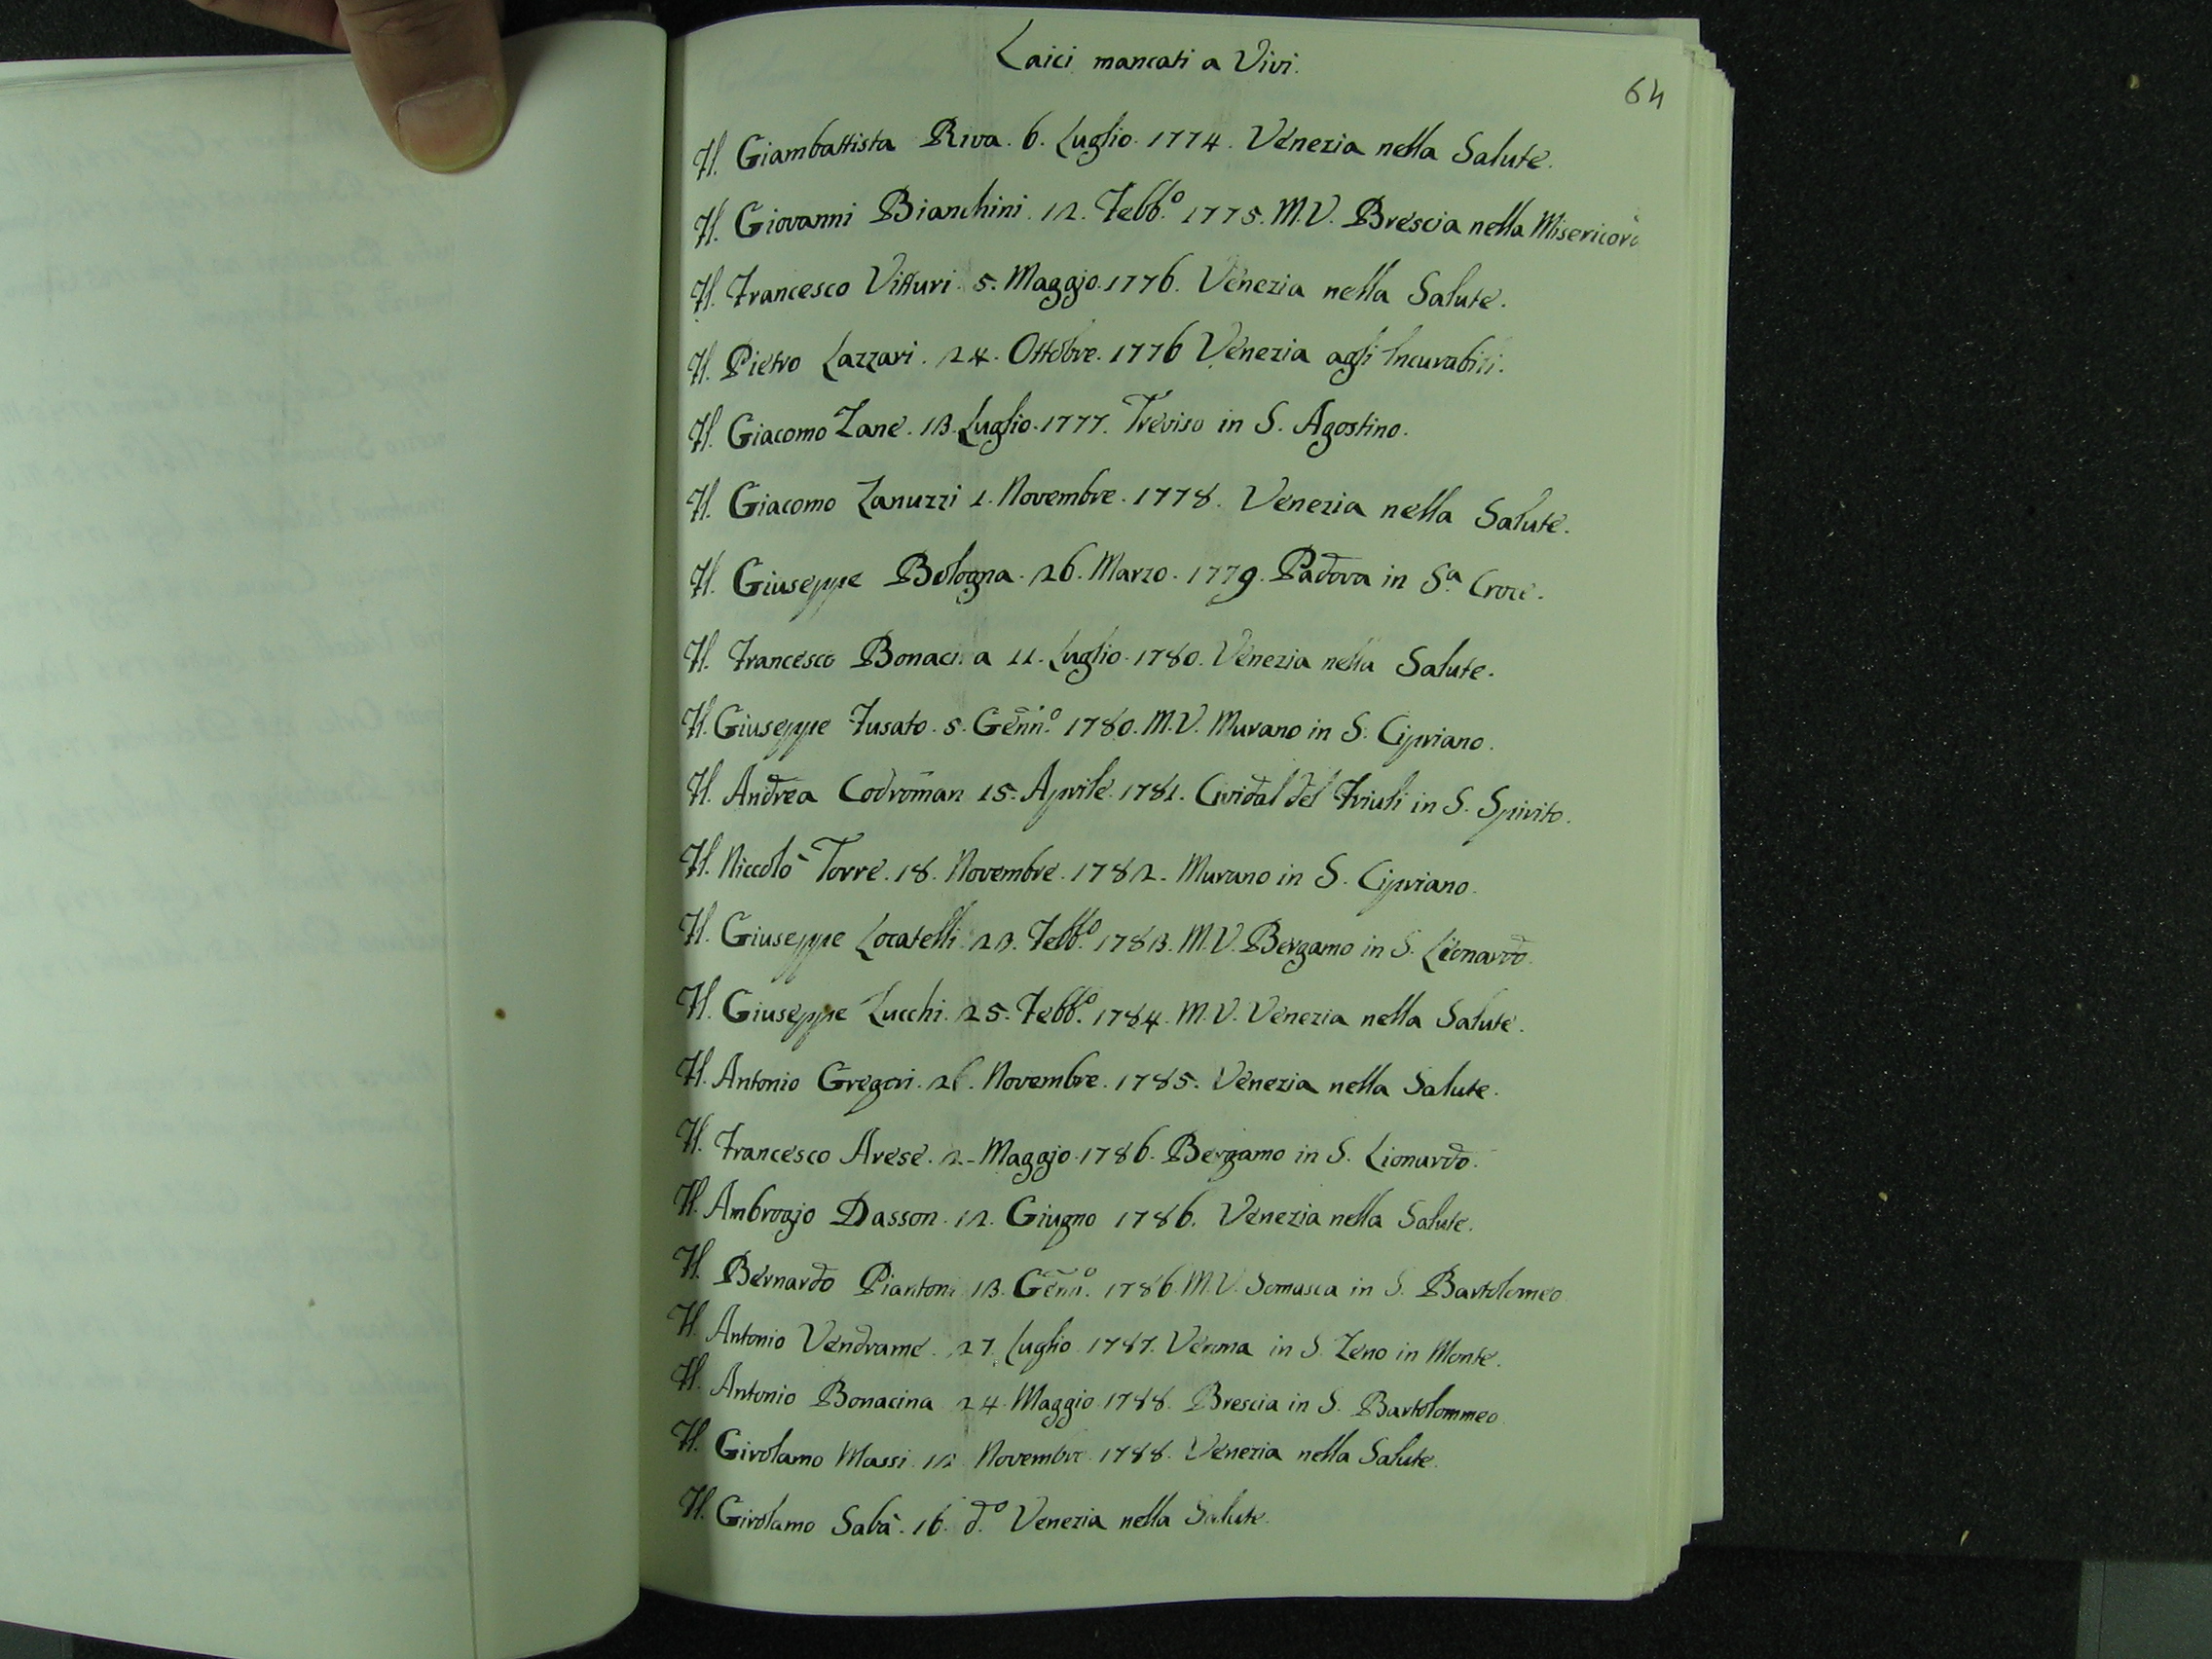 Laici mancati a Vivi.
64
Fl. Giambattista Riva. 6. Luglio. 1774. Venezia nella Salute.
Fl. Giovanni Bianchini. 12. Febb.º 1775. M.V. Brescia nella
Fl. Francesco Vitturi. 5. Maggio. 1776. Venezia nella Salute.
Fl. Pietro Lazzari. 24. Ottobre. 1776 Venezia agli Incurabili.
Fl. Giacomo Zane. 13. Luglio. 1777. Treviso in S. Agostino.
Fl. Giacomo Zanuzzi 1. Novembre. 1778. Venezia nella Salute.
Fl. Giuseppe Bologna. 26. Marzo. 1779. Padova in S.ª Croce.
Fl. Francesco Bonacina 11. Luglio. 1780. Venezia nella Salute.
Fl. Giuseppe Fusato. 5. Genn.º 1780. M.V. Murano in S. Cipriano.
Fl. Andrea Codroman 15. Aprile. 1781. Cividal del Friuli in S. Spirito.
Fl. Niccolò Torre. 18. Novembre. 1782. Murano in S. Cipriano.
Fl. Giuseppe Locatelli. 23. Febb.º 1783. M.V. Bergamo in S. Leonardo.
Fl. Giuseppe Zucchi. 25. Febb.º 1784. M.V. Venezia nella Salute.
Fl. Antonio Gregori. 26. Novembre. 1785. Venezia nella Salute.
Fl. Francesco Arese. 2. Maggio. 1786. Bergamo in S. Lionardo.
Fl. Ambrogio Dasson. 12. Giugno 1786. Venezia nella Salute.
Fl. Bernardo Piantoni 13. Genn.º 1786. M.V. Somasca in S. Bartolomeo
Fl. Antonio Vendrame. 27. Luglio. 1787. Verona in S. Zeno in Monte.
Fl. Antonio Bonacina 24. Maggio. 1788. Brescia in S. Bartolommeo
Fl. Girolamo Massi. 12. Novembre. 1788. Venezia nella Salute.
Fl. Girolamo Sabà. 16. d.º Venezia nella Salute.